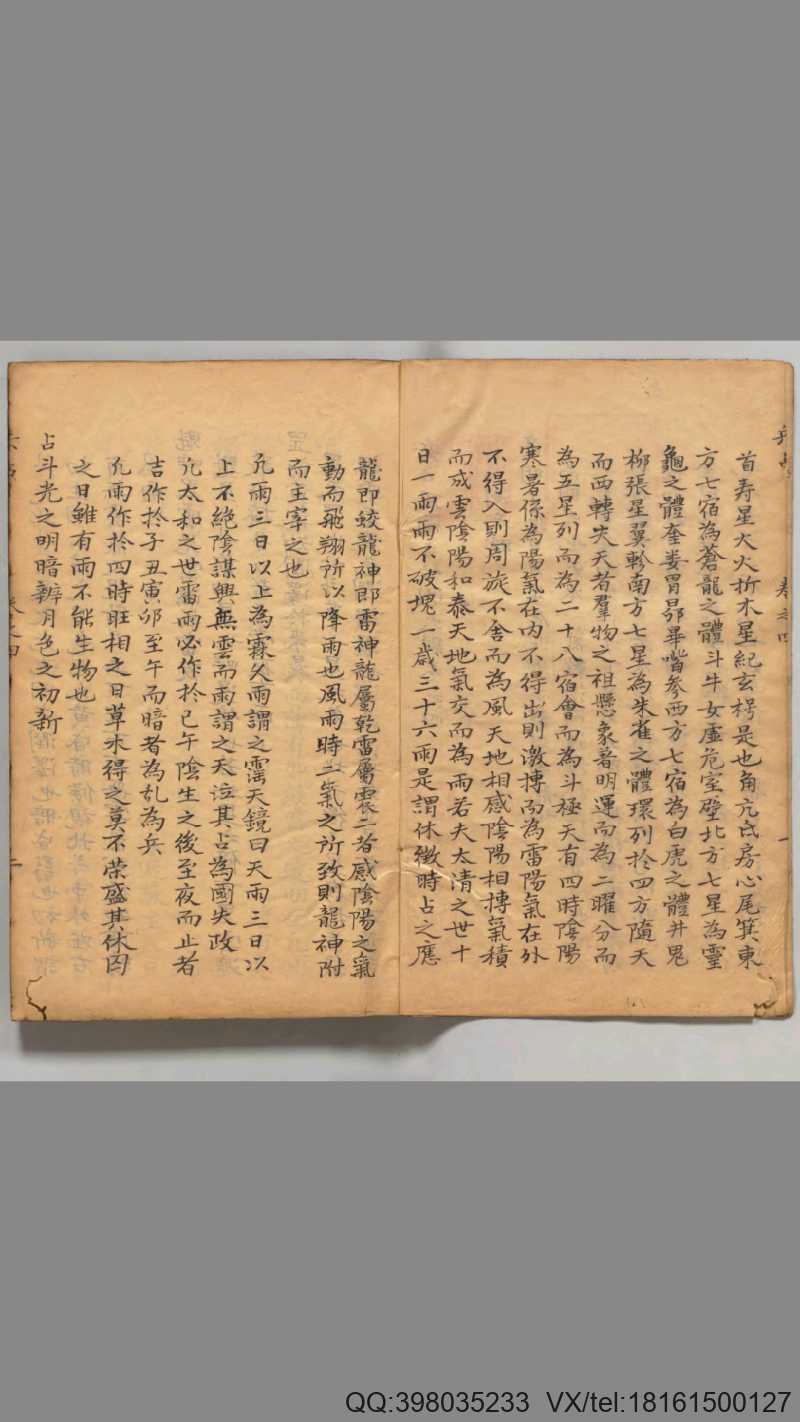 首寿星大火析木星紀玄枵是也角亢氐房心尾箕東
方七宿為蒼龍之體斗牛女虛危室壁北方七星為靈
龜之體奎婁胃昴畢觜參西方七宿為白虎之體井鬼
柳張星翼軫南方七星為朱雀之體環列於四方隨天
而西轉失天者羣物之祖懸象著明運而為二曜分而
為五星列而為二十八宿會而為斗極天有四時陰陽
寒暑係為陽氣在內不得出則激搏而為雷陽氣在外
不得入則周旅不舍而為風天地相感陰陽相搏氣積
而成雲陰陽和泰天地氣交而為雨若夫太清之世十
日一雨雨不破塊一歲三十六雨是謂休徵時占之應
龍即蛟龍神即雷神龍屬乾雷屬震二者感陰陽之氣
動而飛翔所以降雨也風雨時二氣之所致則龍神附
而主宰之也
凢雨三日以上為霖久雨謂之霪天鏡曰天雨三日以
上不絕陰謀興無雲而雨謂之天泣其占為國失政
凢太和之世雷雨必作於巳午陰生之後至夜而止者
吉作於子丑寅卯至午而暗者為乱為兵
凢雨作於四時旺相之日草木得之莫不荣盛其休囚
之日雖有雨不能生物也
占斗光之明暗辨月色之初新
卷之四
一
QQ:398035233 VX/tel:18161500127